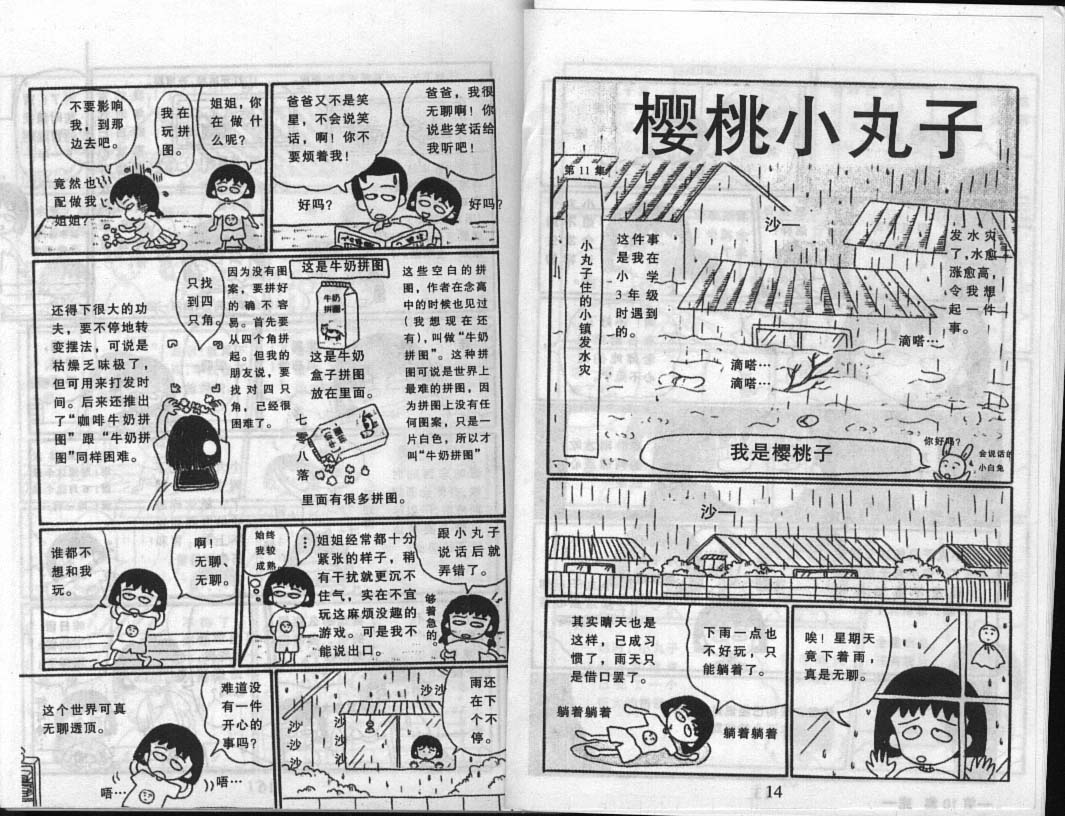 樱桃小丸子
第11集
小丸子住的小镇发水灾
发水灾
了,水愈
涨愈高,
令我想
起一件
事。
这件事
是我在
小学
3年级
时遇到
的。
沙—
滴嗒…
滴嗒…
滴嗒…
我是樱桃子
你好吗?
会说话的
小白兔
沙—
唉!星期天
竟下着雨,
真是无聊。
下雨一点也
不好玩,只
能躺着了。
其实晴天也是
这样,已成习
惯了,雨天只
是借口罢了。
躺着躺着
躺着躺着
14
爸爸,我很
无聊啊!你
说些笑话给
我听吧!
好吗?
爸爸又不是笑
星,不会说笑
话,啊!你不
要烦着我!
好吗?
姐姐,你
在做什
么呢?
我在
玩拼
图。
不要影响
我,到那
边去吧。
竟然也
配做我
姐姐?
这些空白的拼
图,作者在念高
中的时候也见过
(我想现在还
有),叫做“牛奶
拼图”。这种拼
图可说是世界上
最难的拼图,因
为拼图上没有任
何图案,只是一
片白色,所以才
叫“牛奶拼图”
这是牛奶拼图
牛奶
拼圖
这是牛奶
盒子拼图
放在里面。
七零八落
里面有很多拼图。
因为没有图
案,要拼好
的确不容
易。首先要
从四个角拼
起。但我的
朋友说,要
找对四只
角,已经很
困难了。
只找
到四
只角。
还得下很大的功
夫,要不停地转
变摆法,可说是
枯燥乏味极了,
但可用来打发时
间。后来还推出
了“咖啡牛奶拼
图”跟“牛奶拼
图”同样困难。
跟小丸子
说话后就
弄错了。
够着急的。
姐姐经常都十分
紧张的样子,稍
有干扰就更沉不
住气,实在不宜
玩这麻烦没趣的
游戏。可是我不
能说出口。
…
始终
我较
成熟
啊!
无聊、
无聊。
谁都不
想和我
玩。
雨还
在下
个不
停。
沙沙
沙沙沙
沙沙沙
难道没
有一件
开心的
事吗?
这个世界可真
无聊透顶。
唔…
唔…